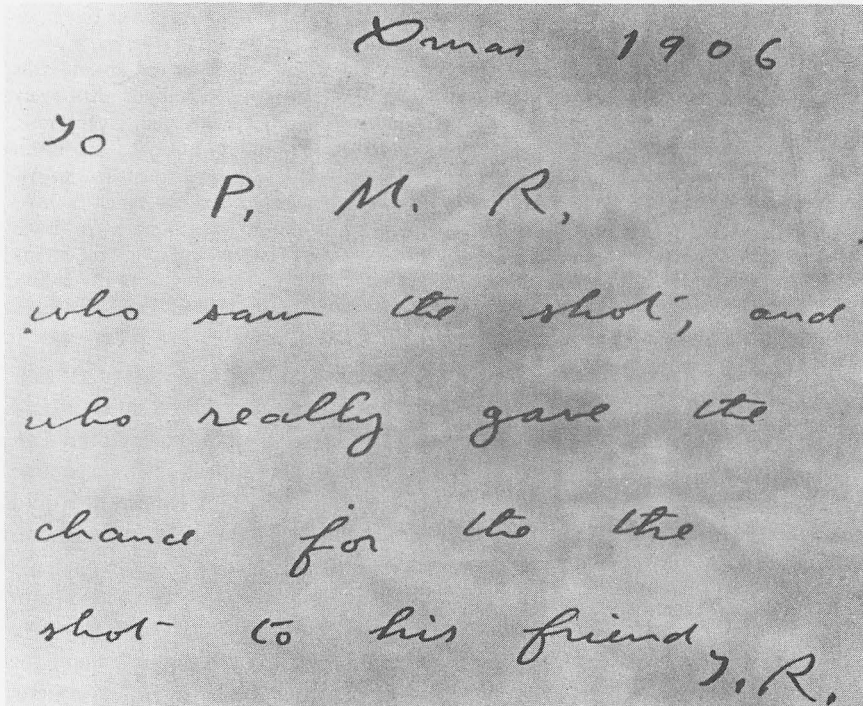 Xmas 1906
To
P. M. R.
who saw the shot, and
who really gave the
chance for the the
shot to his friend
T. R.